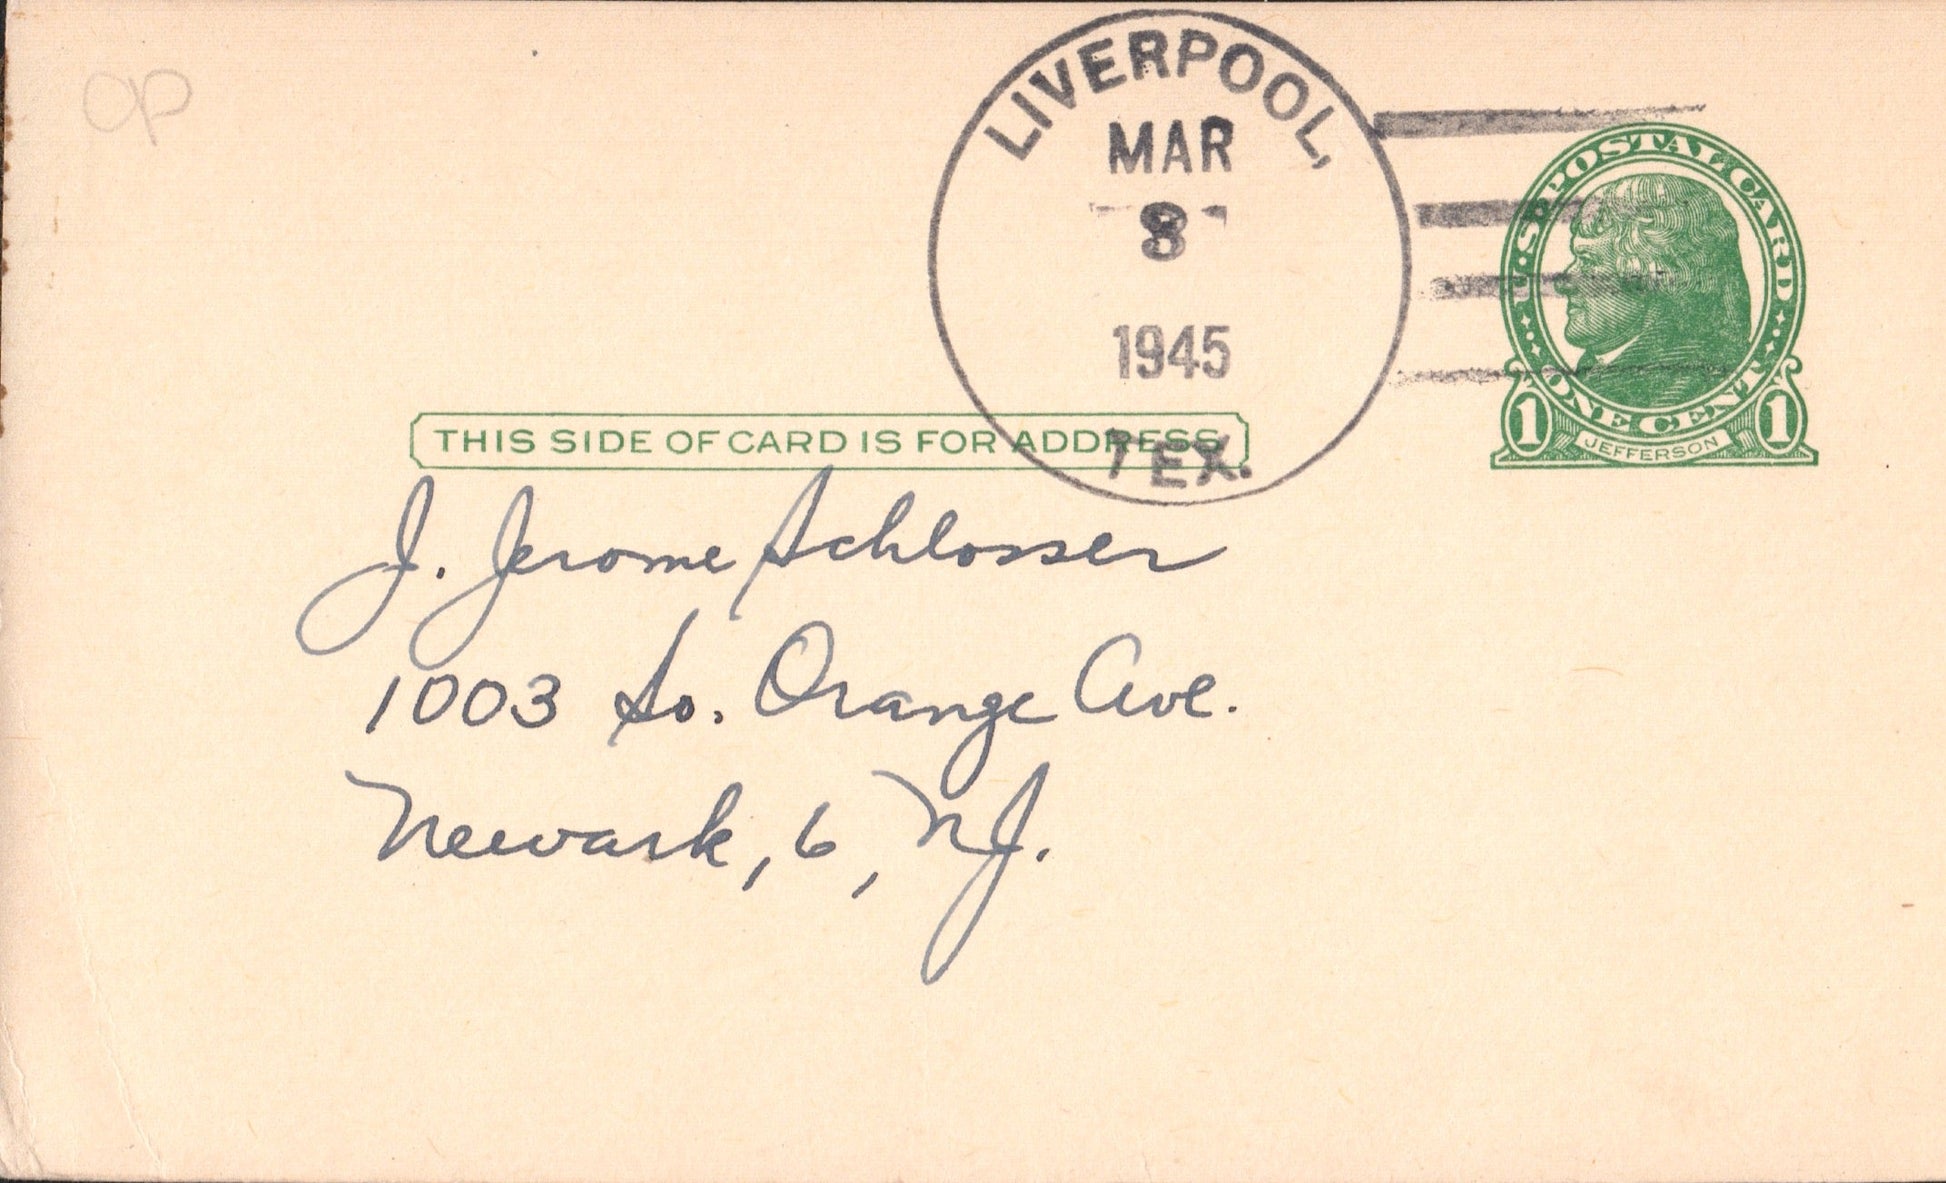 OP
LIVERPOOL,
MAR
8
1945
TEX.
U.S. POSTAL CARD
ONE CENT
1 JEFFERSON 1
THIS SIDE OF CARD IS FOR ADDRESS
J. Jerome Schlosser
1003 So. Orange Ave.
Newark, 6, N.J.